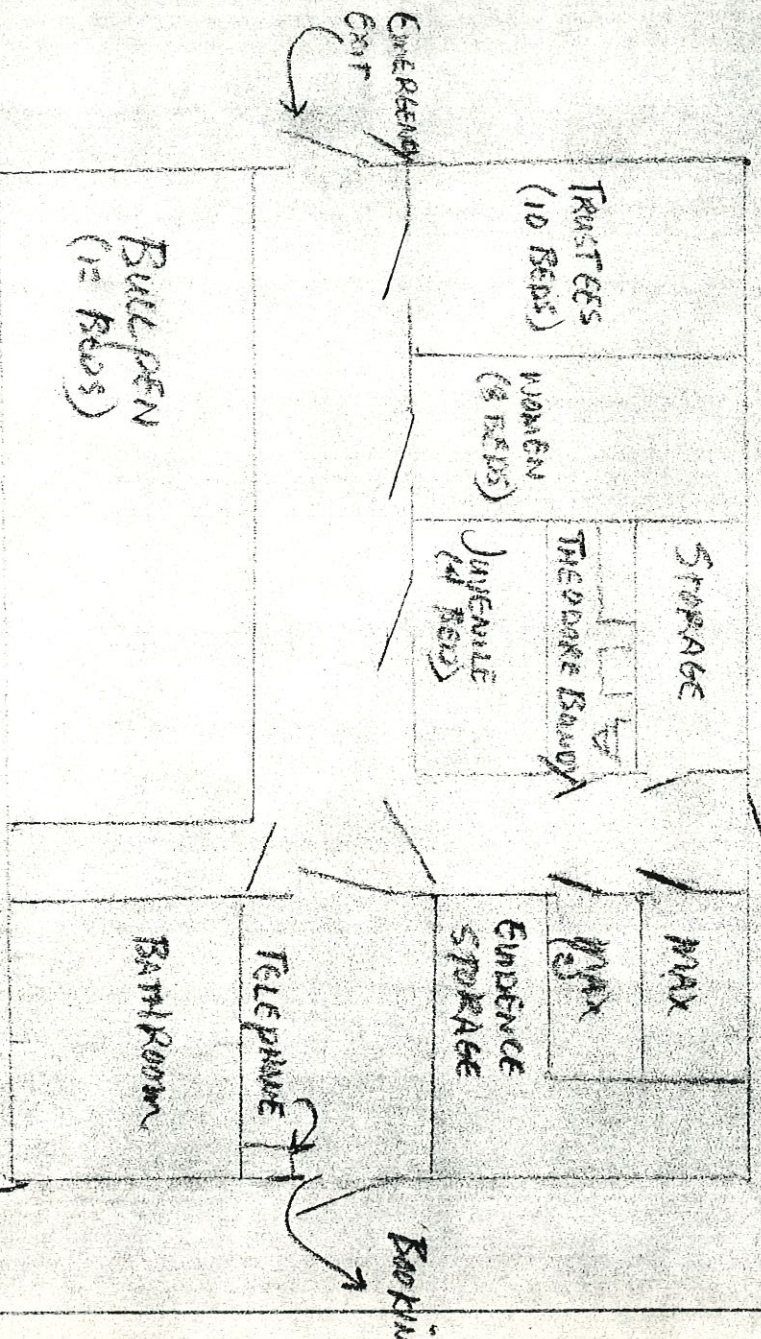 EMERGENCY
EXIT
TRUSTEES
(10 BEDS)
WOMEN
BEDS)
STORAGE
THEODORE BUNDY
JUVENILE
(4 BEDS)
BULLPEN
BEDS)
MAX
MAX
EVIDENCE
STORAGE
TELEPHONE
BATHROOM
BOOKIN